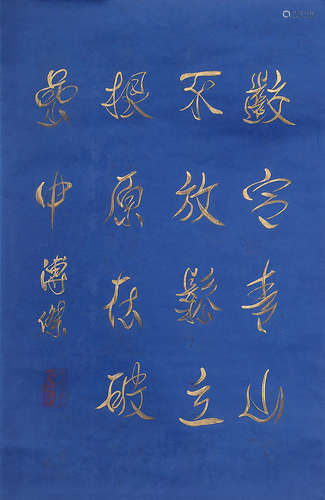 齩定青山
不放鬆立
根原在破
嵒中 溥傑